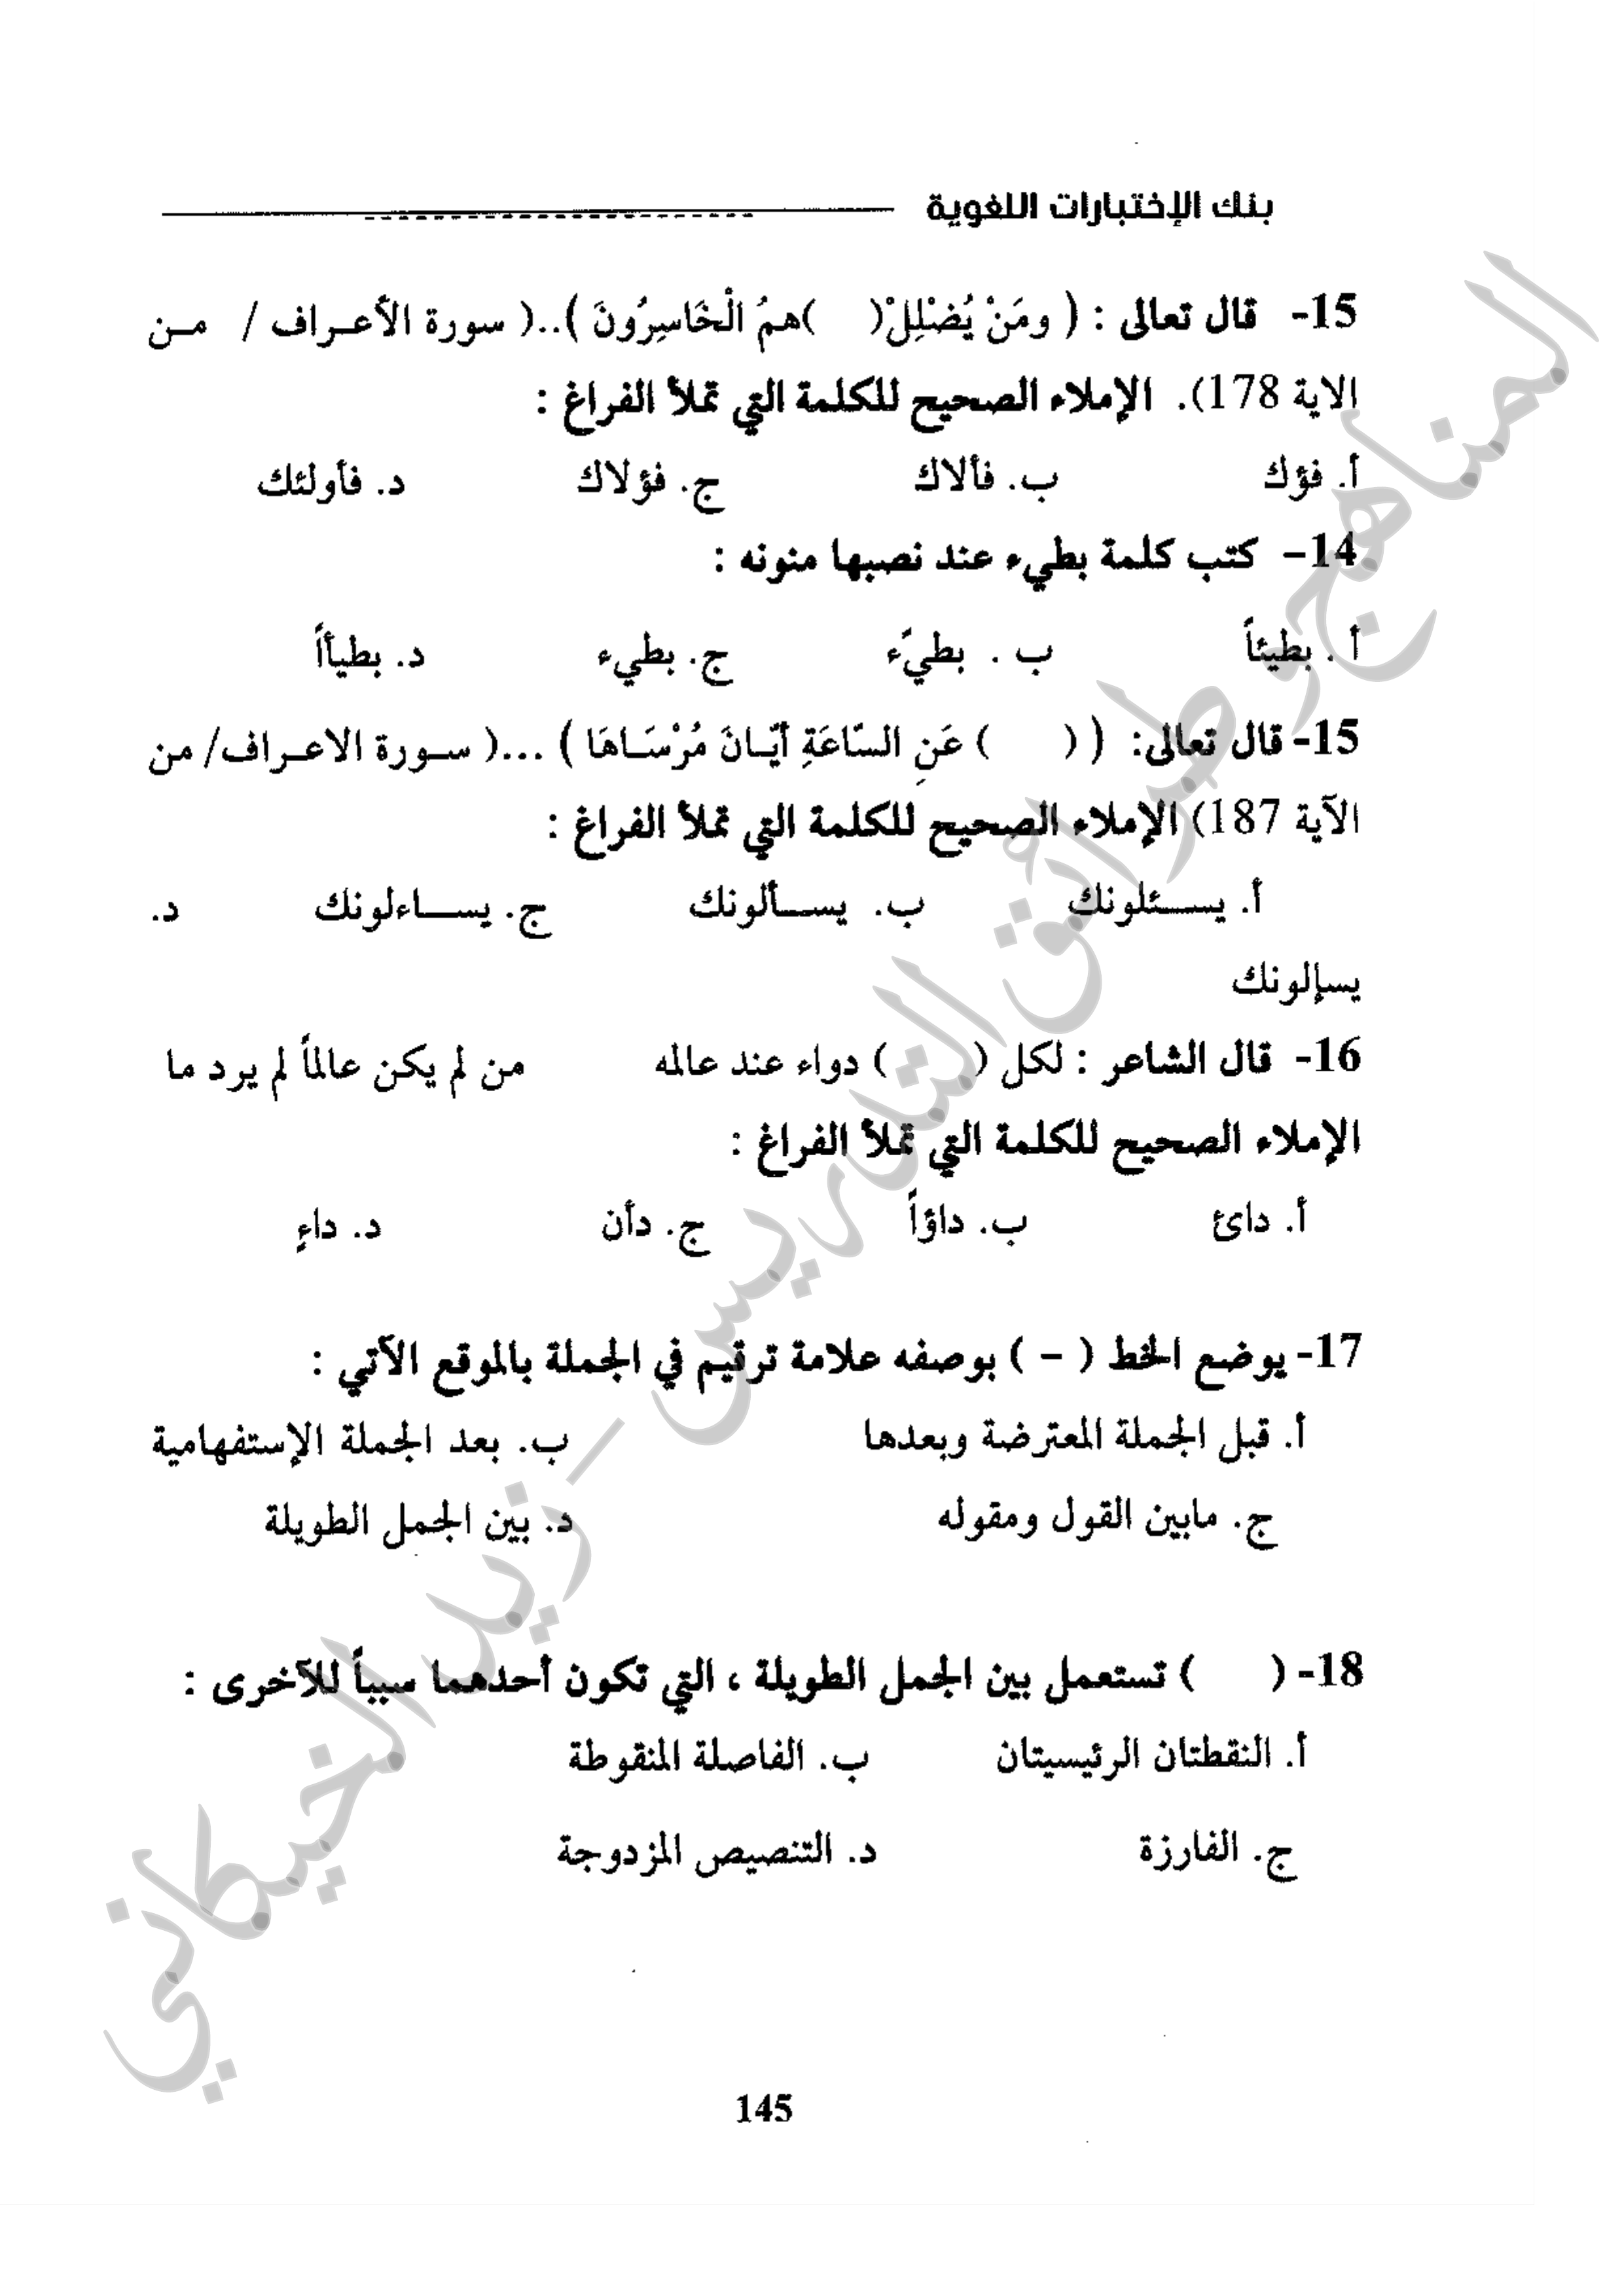 بنك الإختبارات اللغوية
15- قال تعالى : ( ومَنْ يُضْلِلْ( )همُ الْخَاسِرُونَ )..( سورة الأعراف / من
الاية 178). الإملاء الصحيح للكلمة التي تملأ الفراغ :
أ. فؤك ب. فألاك ج. فؤلاك د. فأولئك
14- كتب كلمة بطيء عند نصبها منونه :
أ . بطيئاً ب . بطيًء ج. بطيء د. بطيأاً
15- قال تعالى: ( ( ) عَنِ السّاعَةِ أيّانَ مُرْسَاهَا ) ...( سورة الاعراف/ من
الآية 187) الإملاء الصحيح للكلمة التي تملأ الفراغ :
أ. يسئلونك ب. يسألونك ج. يساءلونك د.
يسإلونك
16- قال الشاعر : لكل ( ) دواء عند عالمه من لم يكن عالماً لم يرد ما
الإملاء الصحيح للكلمة التي تملأ الفراغ :
أ. دائ ب. داؤاً ج. دأن د. داءٍ
17- يوضع الخط ( – ) بوصفه علامة ترقيم في الجملة بالموقع الآتي :
أ. قبل الجملة المعترضة وبعدها ب. بعد الجملة الإستفهامية
ج. مابين القول ومقوله د. بين الجمل الطويلة
18- ( ) تستعمل بين الجمل الطويلة ، التي تكون أحدهما سبباً للآخرى :
أ. النقطتان الرئيسيتان ب. الفاصلة المنقوطة
ج. الفارزة د. التنصيص المزدوجة
145
المناهج وطرائق التدريس - زيد الخيكاني